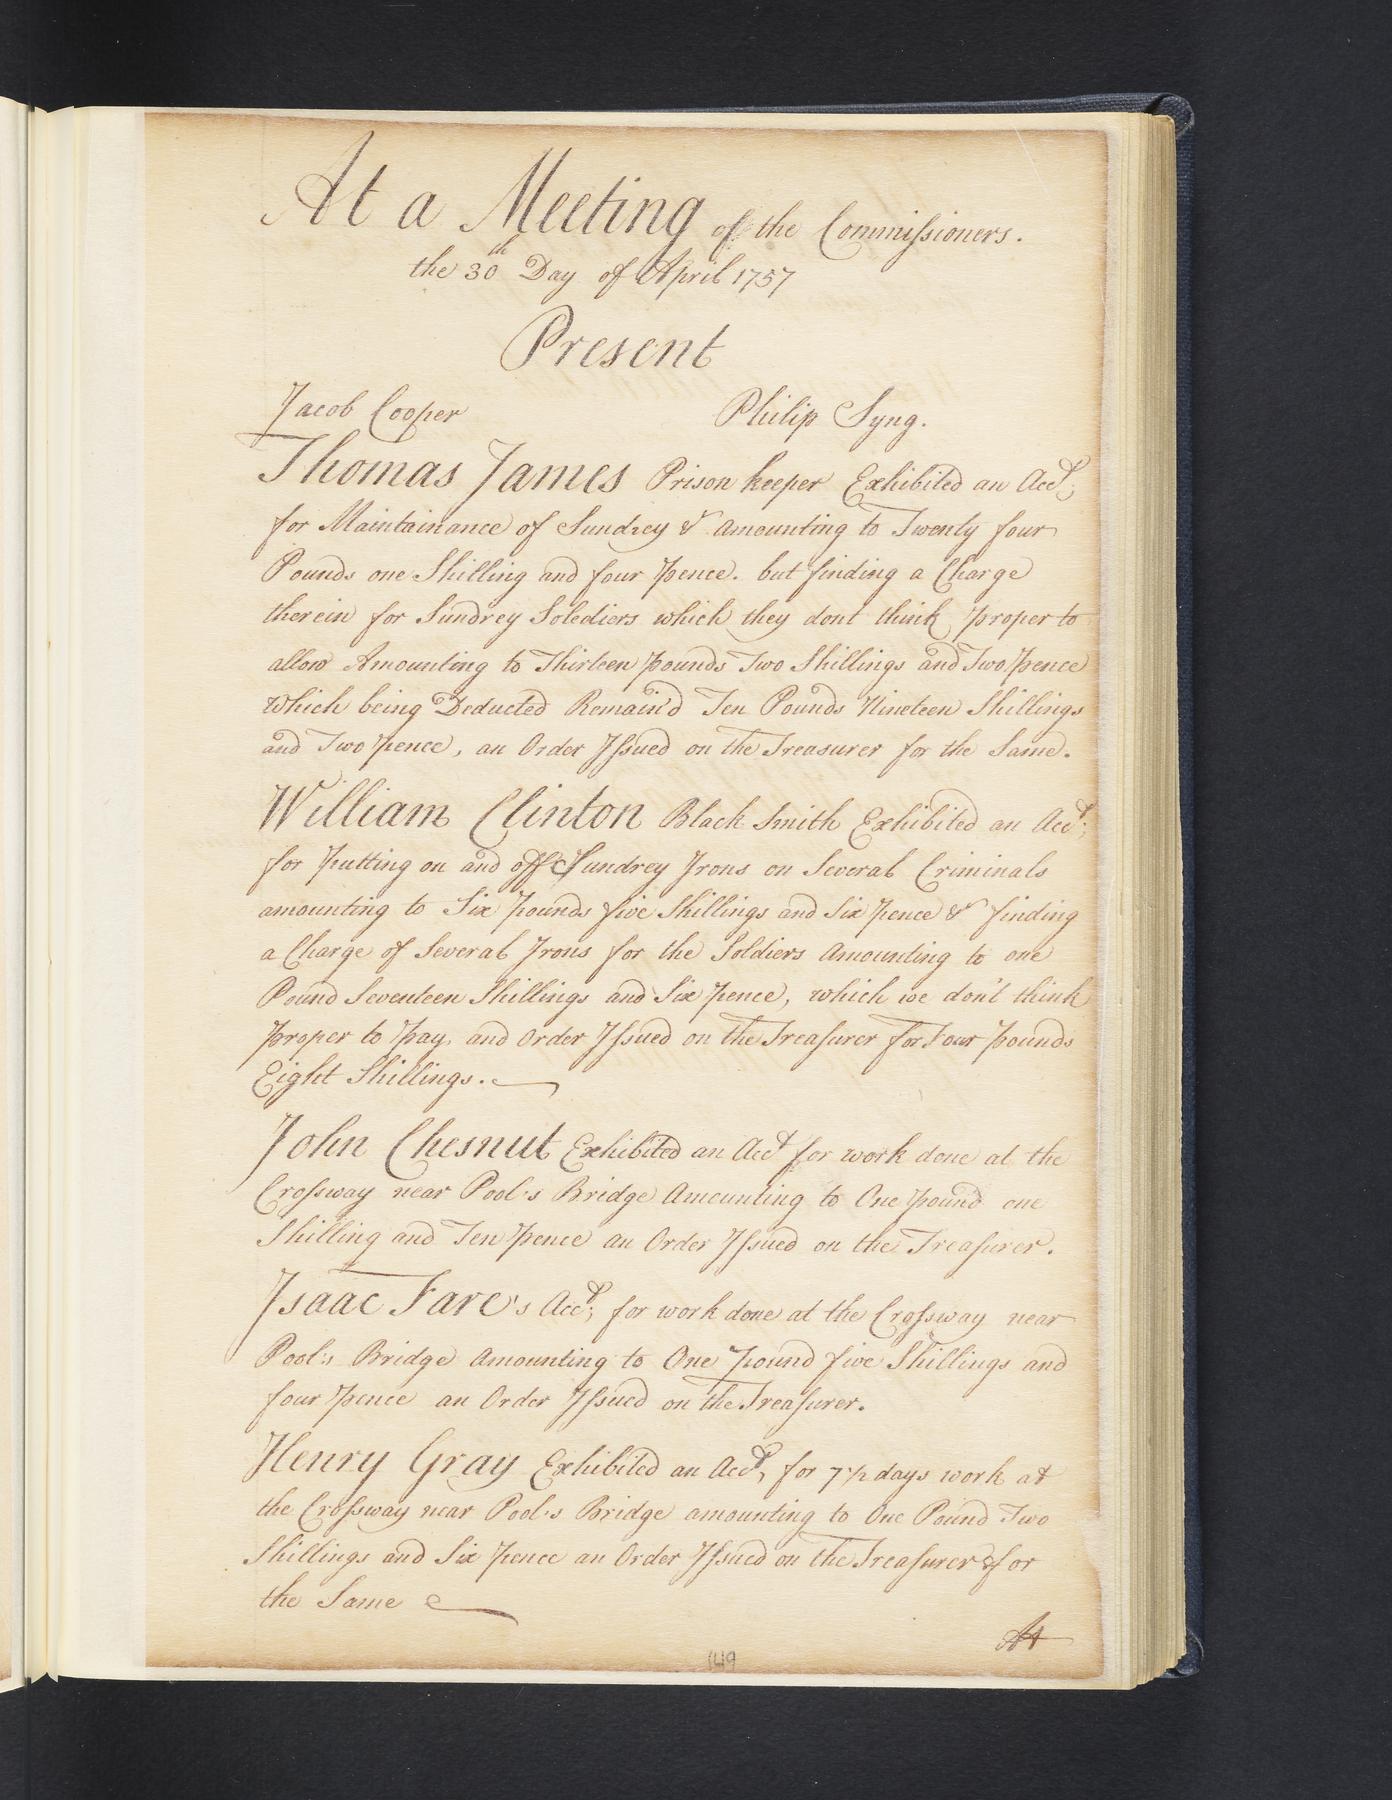 At a Meeting of the Commissioners.
the 30th Day of April 1757
Present
Jacob Cooper Philip Syng.
Thomas James Prison keeper Exhibited an Acct;
for Maintainance of Sundrey & amounting to Twenty four
Pounds one Shilling and four pence. but finding a Charge
therein for Sundrey Solediers which they dont think proper to
allow Amounting to Thirteen pounds Two Shillings and Two pence
which being Deducted Remain'd Ten Pounds Nineteen Shillings
and Two pence, an Order Issued on the Treasurer for the Same.
William Clinton Black Smith Exhibited an Acct;
for putting on and off Sundrey Irons on Several Criminals
amounting to Six pounds five Shillings and Six pence & finding
a Charge of Several Irons for the Soldiers Amounting to one
Pound Seventeen Shillings and Six pence, which we don't think
proper to pay, and Order Issued on the Treasurer for Four pounds
Eight Shillings.
John Chesnut Exhibited an Acct for work done at the
Crossway near Pool's Bridge Amounting to One pound one
Shilling and Ten pence an Order Issued on the Treasurer.
Isaac Fare's Acct; for work done at the Crossway near
Pool's Bridge Amounting to One pound five Shillings and
four pence an Order Issued on the Treasurer.
Henry Gray Exhibited an Acct, for 7½ days work at
the Crossway near Pool's Bridge amounting to One Pound Two
Shillings and Six pence an Order Issued on the Treasurer for
the Same
At
149